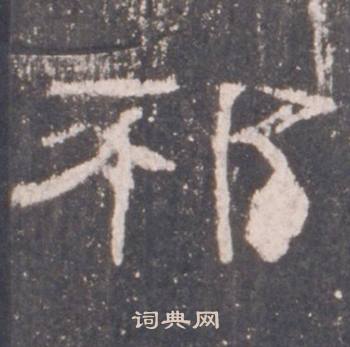 祁
词典网